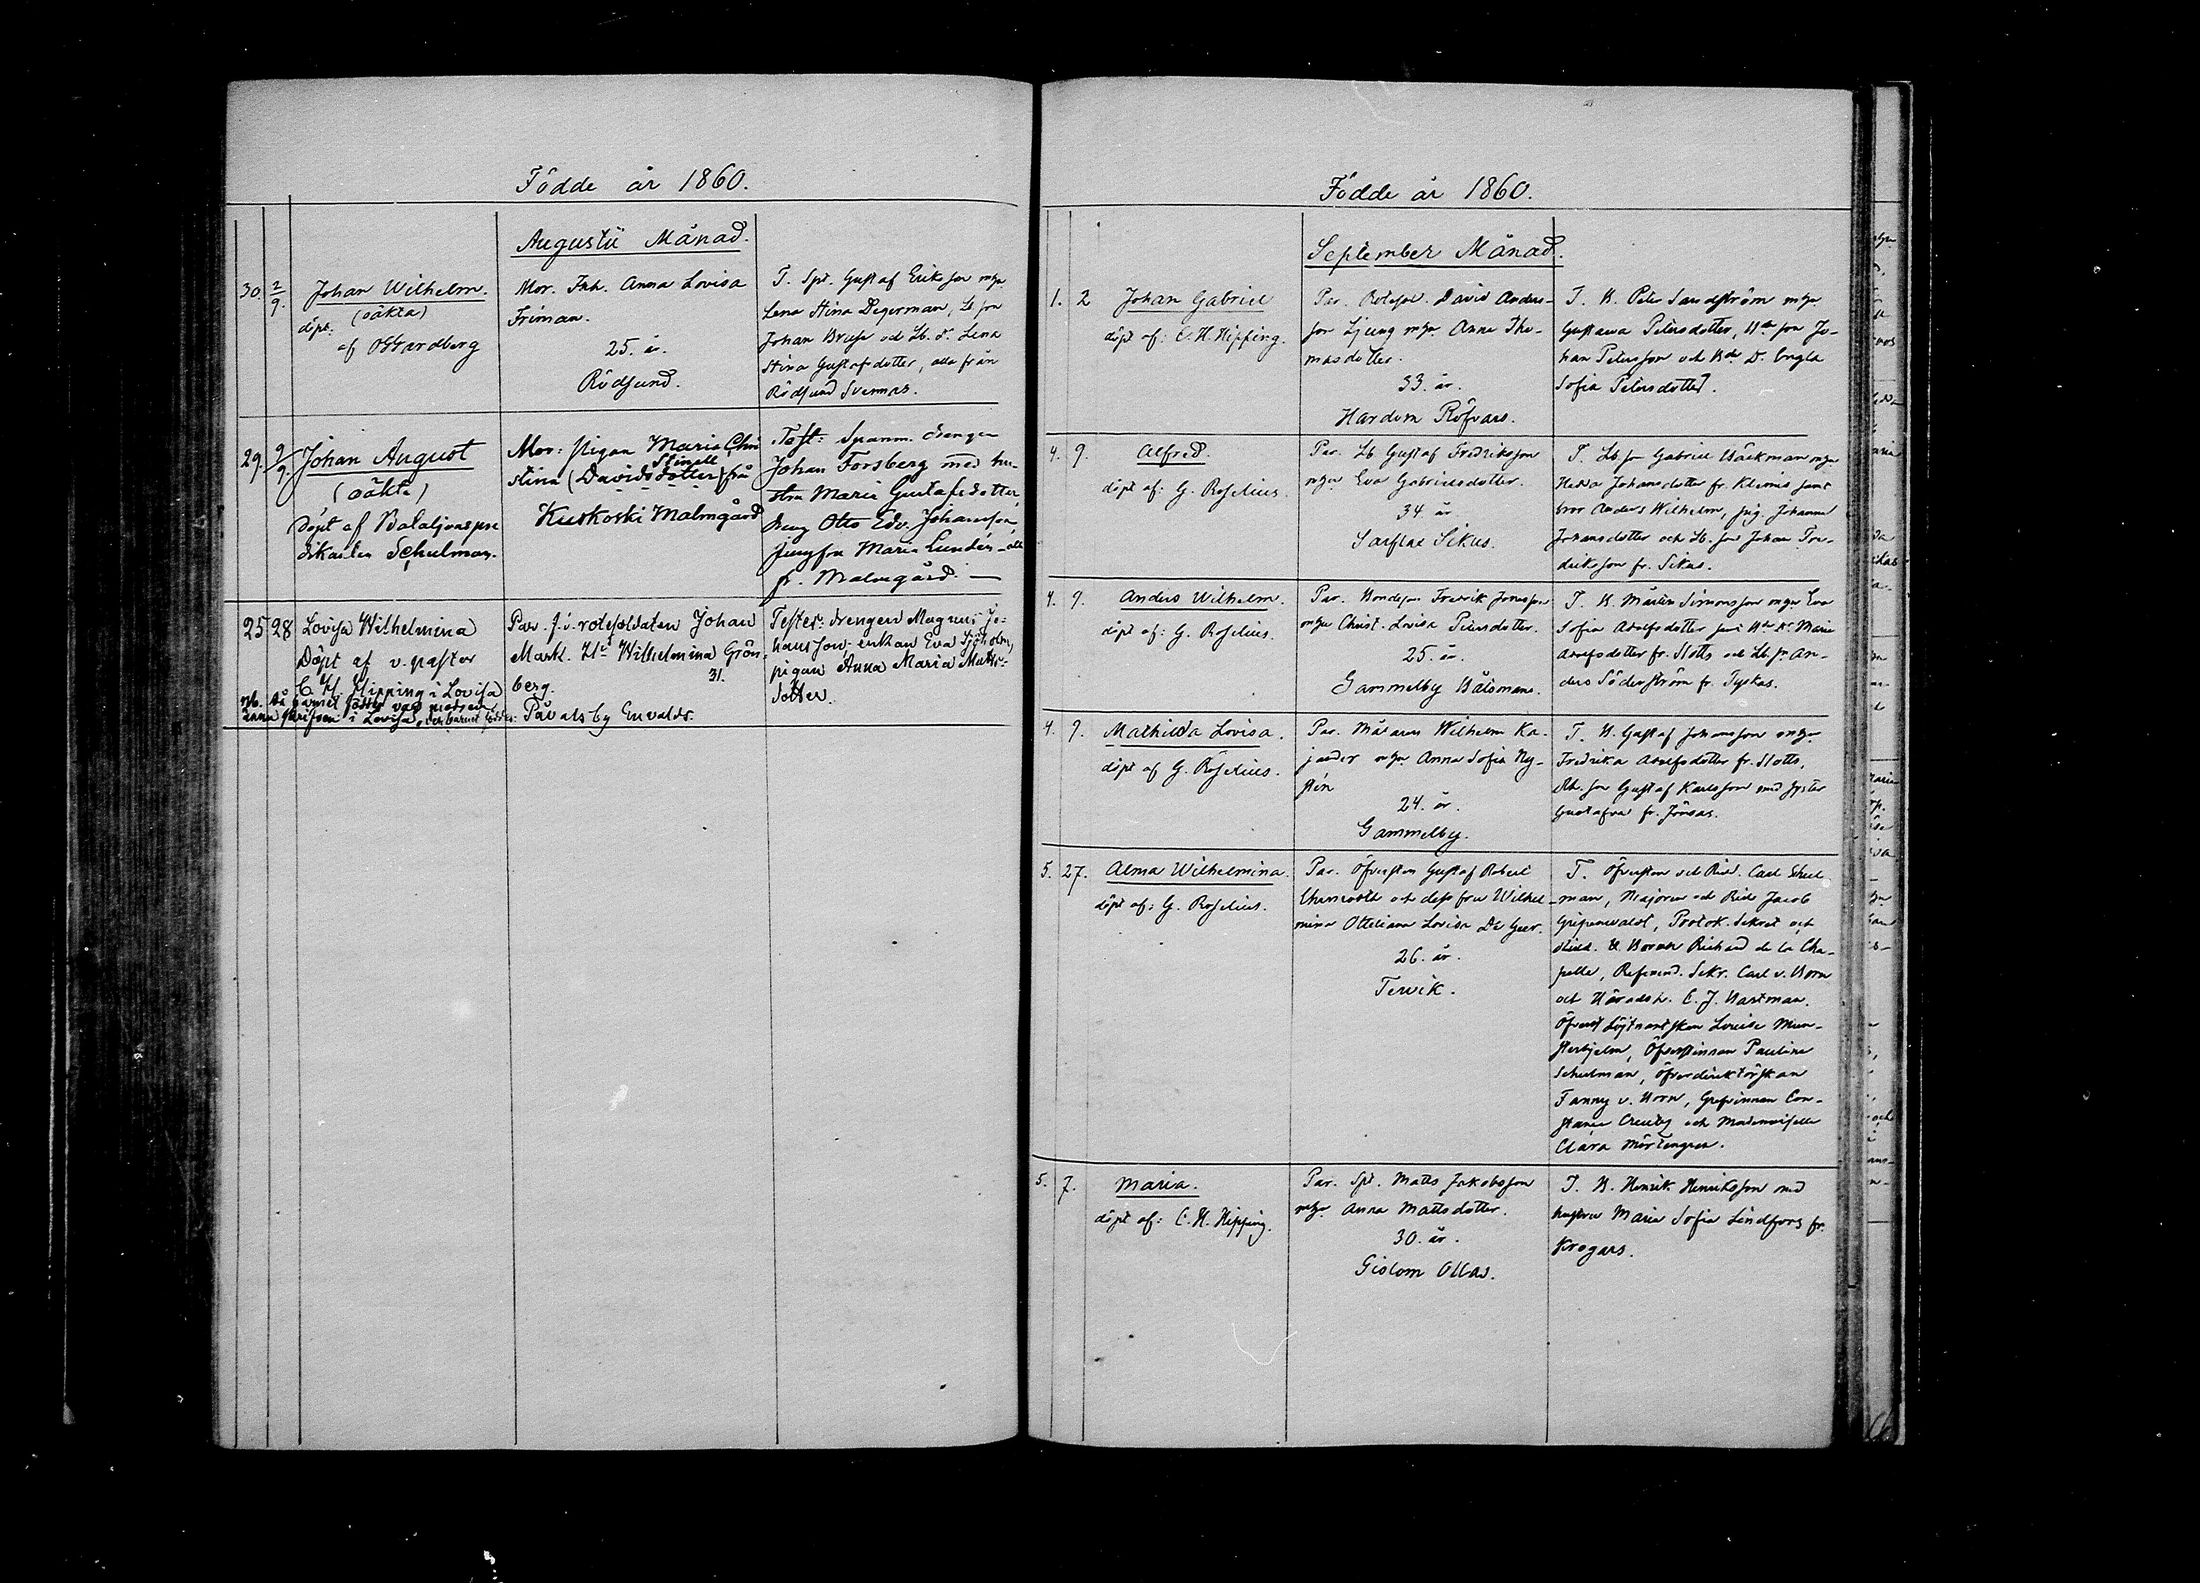 Födde år 1860.
Augusti Månad.
30. 2/9. Johan Wilhelm.
(oäkta)
döpt:
af Wardberg
Mor. Inh. Anna Lovisa
Friman.
25. år.
Rödsund.
T. Spt. Gustaf Eriksson m.h.
Lena Stina Degerman, Lb son
Johan Bruse och Lb. d. Lena
Stina Gustafsdotter, alla från
Rödsund Svennas.
29. 9/9. Johan August
(oäkta)
Döpt af Bataljonspre
dikanten Schulman.
Mor: Pigan Maria Chri
stina (Davidsdotter) från
Kuskoski Malmgård
Test: Spanm. drengen
Johan Forsberg med hu-
stru Maria Gustafsdotter,
dreng Otto Edv. Johansson,
Jungfru Maria Lundén - alla
fr. Malmgård. —
25 28 Lovisa Wilhelmina
Döpt af v. pastor
C. H. Hipping i Lovisa
Nb. Då barnet föddes var modren
i Lovisa, der barnet föddes.
Par. f.v. rotesoldaten Johan
Markl. Wilhelmina Grön-
berg. 31.
Påvalsby Envalds.
Tester: drengen Magnus Jo-
hansson enkan Eva Sjöholm,
pigan Anna Maria Matts-
dotter.
Födde år 1860.
September Månad.
1. 2 Johan Gabriel
döpt af: C. H. Hipping.
Par. Rotesol. David Anders-
son Ljung m.h. Anna Tho-
masdotter.
33. år.
Hardom Röfvars.
T. B. Peter Sandström m.h.
Gustava Petersdotter, Bde son Jo-
han Petersson och Bde D. Engla
Sofia Petersdotter.
4. 9. Alfred.
döpt af: G. Roselius.
Par. Lb Gustaf Fredriksson
m.h. Eva Gabrielsdotter.
34. år
Sarflax Sikus.
T. Lb. sn Gabriel Bäckman m.h.
Hedda Johansdotter fr. Klemis samt
bror Anders Wilhelm, pig. Johanna
Johansdotter och Lb. son Johan Fre-
driksson fr. Sikus.
4. 9. Anders Wilhelm.
döpt af: G. Roselius.
Par. Bondeson Fredrik Jonasson
m.h. Christ. Lovisa Petersdotter.
25. år.
Gammelby Båtsmans.
T. B. Mårten Simonsson m.h. Eva
Sofia Adolfsdotter samt Bde dr Maria
Adolfsdotter fr. Slotts och Lb. sn An-
ders Söderström fr. Tyskas.
4. 9. Mathilda Lovisa.
döpt af G. Roselius.
Par. Målaren Wilhelm Ka-
jander m.h. Anna Sofia Ny-
stén
24. år.
Gammelby.
T. B. Gustaf Johansson m.h.
Fredrika Adolfsdotter fr. Slotts,
son Gustaf Karlsson med syster
Gustafva fr. Jönsas.
5. 27. Alma Wilhelmina.
döpt af: G. Roselius.
Par. Öfversten Gustaf Robert
och dess fru Wilhel-
mina Ottiliana Lovisa De Geer.
26. år.
Tervik.
T. Öfversten och Ridd. Carl Schul-
man, Majoren och Ridd. Jacob
Gripenwaldt, Protok. Sekret. och
Richard de la Cha-
pelle, Referend. Sekr. Carl v. Born
och Häradsh. C. J. Hartman.
Öfverst Löjtnantskan Lovise Mun-
sterhjelm, Öfverstinnan Pauline
Schulman, Öfverdirektörskan
Fanny v. Born, Grefvinnan Con-
stance Creutz och Mademoiselle
Clara Mårtengren.
5. 7. Maria.
döpt af: C. H. Hipping.
Par. Spt. Matts Jakobsson
m.h. Anna Mattsdotter.
30. år.
Gislom Ollas.
T. B. Henrik Henriksson med
hustru Maria Sofia Lindfors fr.
Krogars.